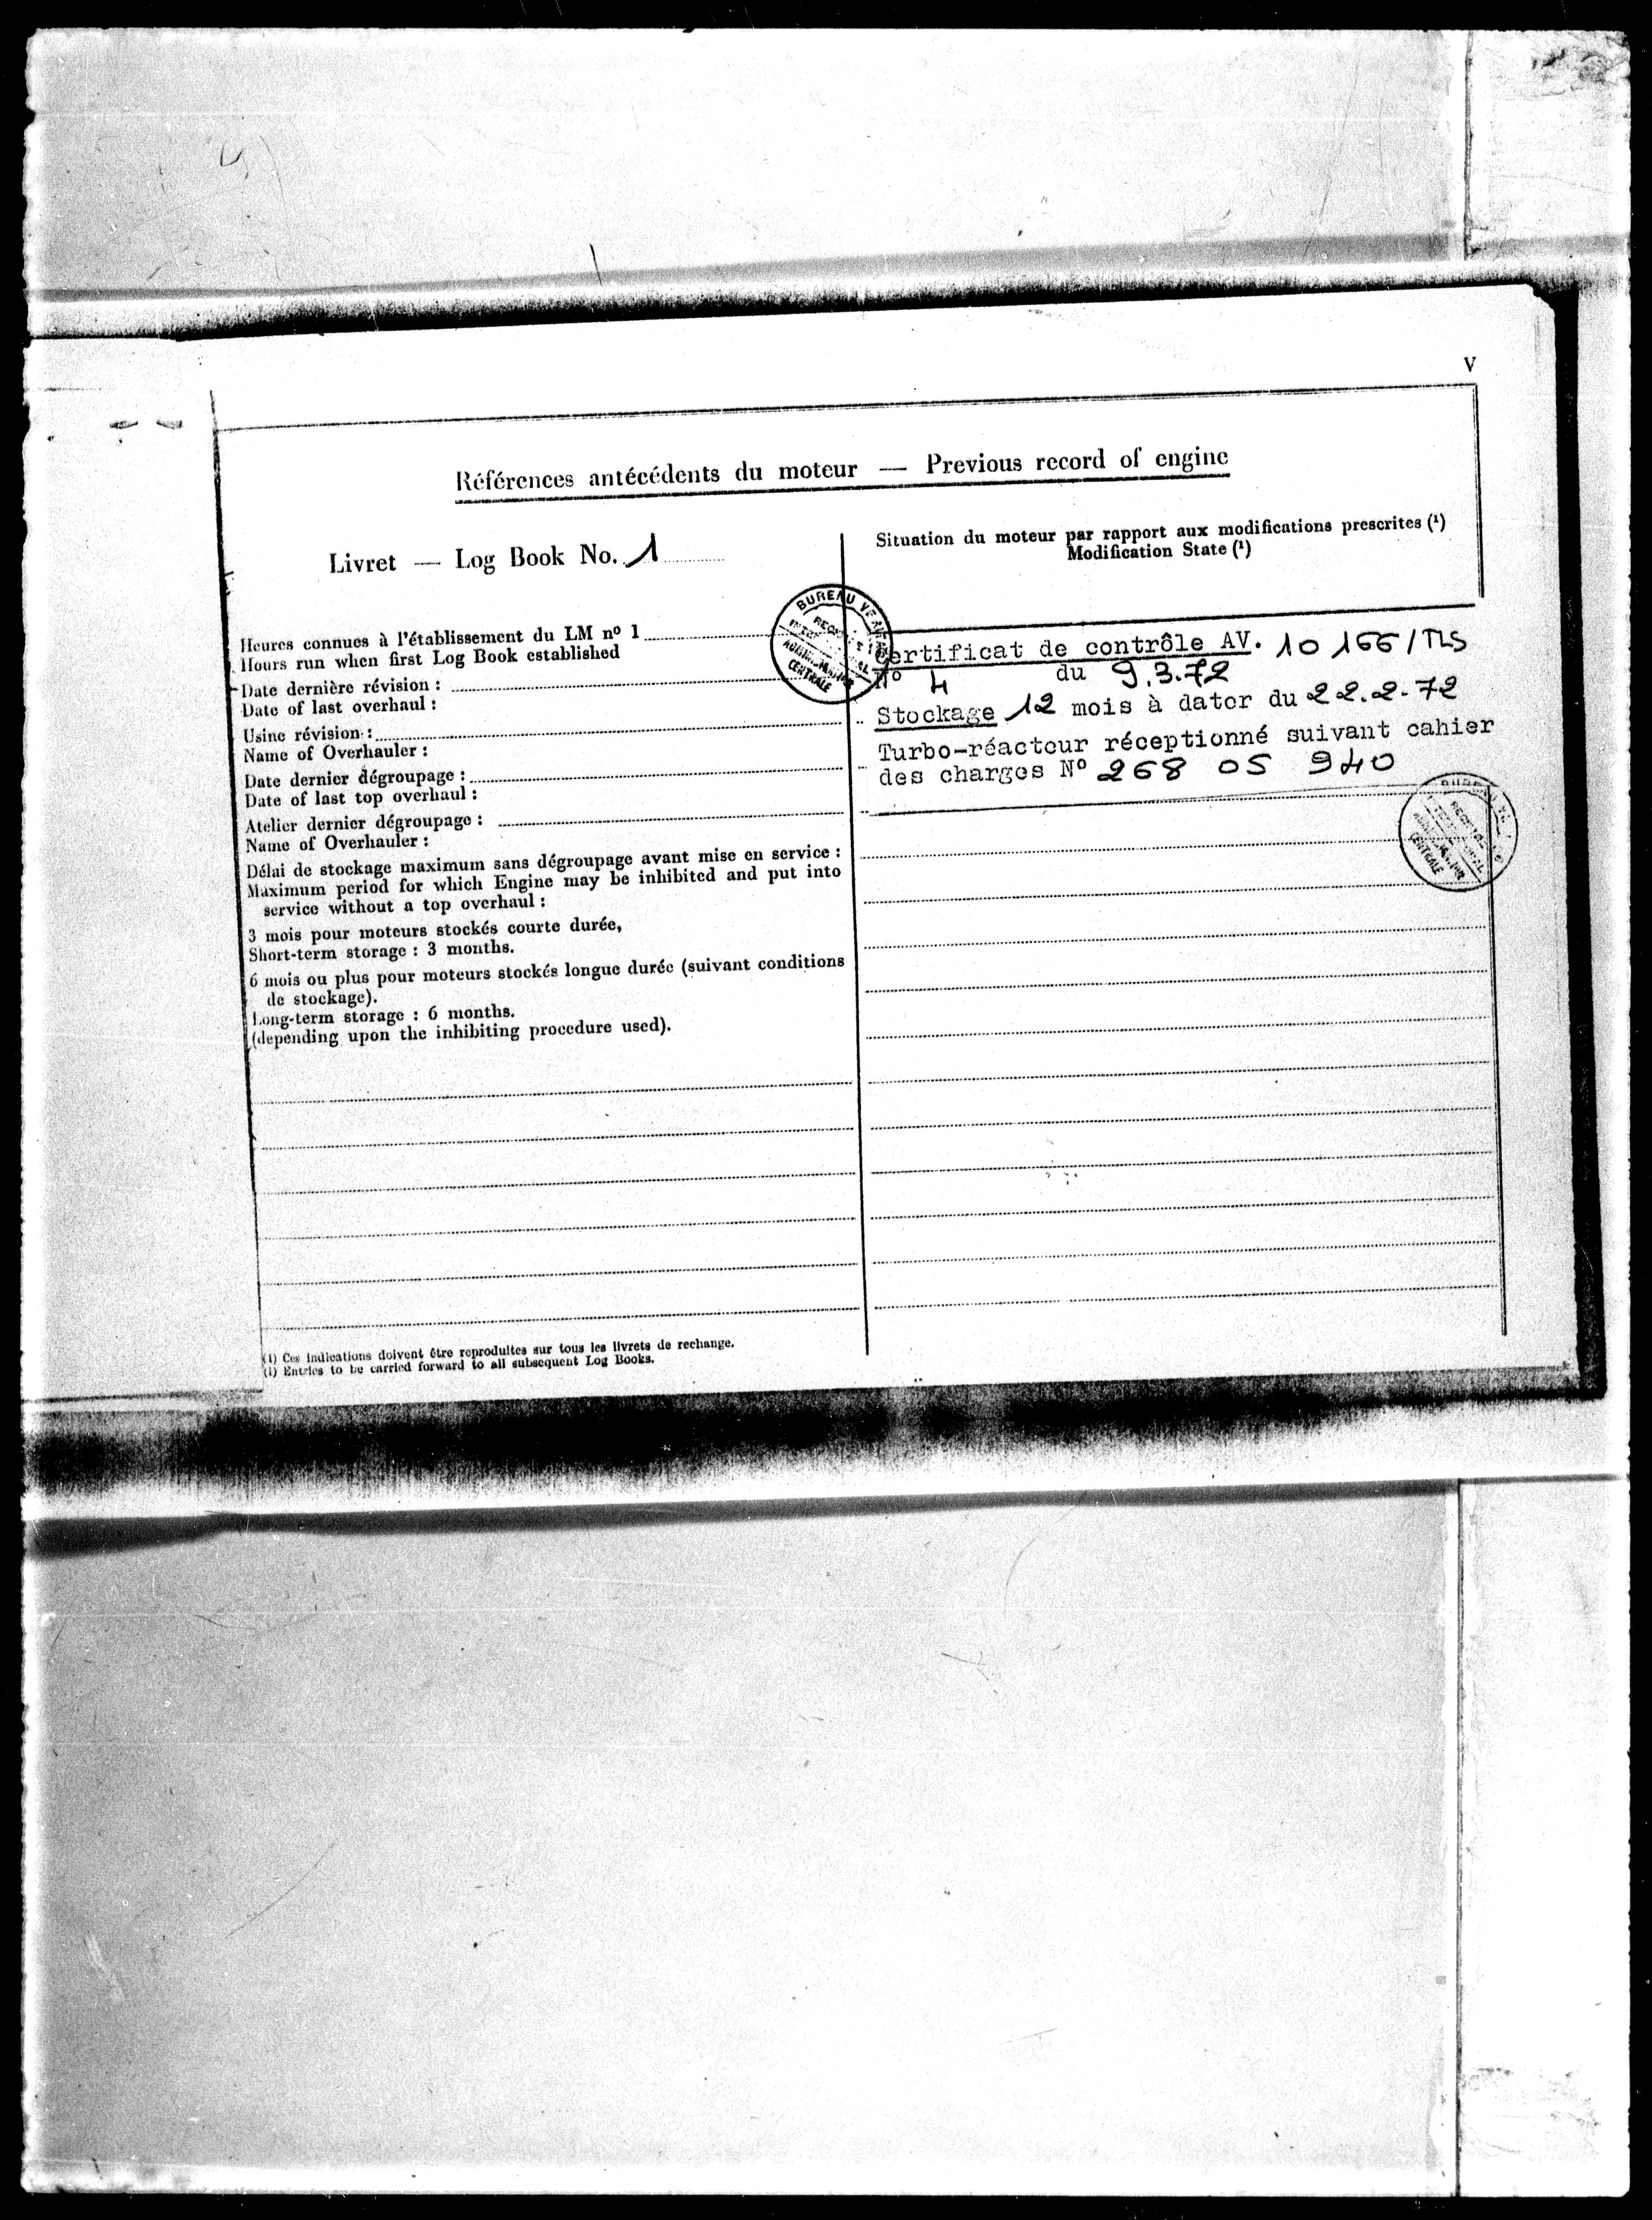 V
Références antécédents du moteur — Previous record of engine
Livret — Log Book No. 1
Heures connues à l'établissement du LM nº 1
Hours run when first Log Book established
Date dernière révision :
Date of last overhaul :
Usine révision :
Name of Overhauler :
Date dernier dégroupage :
Date of last top overhaul :
Atelier dernier dégroupage :
Name of Overhauler :
Délai de stockage maximum sans dégroupage avant mise en service :
Maximum period for which Engine may be inhibited and put into
service without a top overhaul :
3 mois pour moteurs stockés courte durée,
Short-term storage : 3 months.
6 mois ou plus pour moteurs stockés longue durée (suivant conditions
de stockage).
Long-term storage : 6 months.
(depending upon the inhibiting procedure used).
Situation du moteur par rapport aux modifications prescrites (¹)
Modification State (¹)
Certificat de contrôle AV. 10 166/TLS
Nº 4 du 9.3.72
Stockage 12 mois à dater du 22.2.72
Turbo-réacteur réceptionné suivant cahier
des charges Nº 268 05 940
BUREAU
CENTRALE
CENTRALE
(1) Ces indications doivent être reproduites sur tous les livrets de rechange.
(1) Entries to be carried forward to all subsequent Log Books.